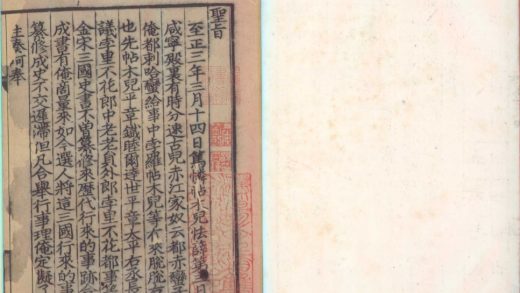 聖旨
至正三年三月十四日篤憐帖木兒怯薛第三日
咸寧殿裏有時分速古兒赤江家奴云都赤蠻
俺都剌哈蠻給事中孛羅帖木兒等有來脫脫右
也先帖木兒平章鐵睦爾達世平章太平右丞長
議孛里不花郎中老老員外郎孛里不花都事
金宋三國史書不曾纂修來歷代行來的事跡合
成書有俺商量來如今選人將這三國行來的事
纂修成史不交遲滯但凡合舉行事理俺定擬了
奏呵奉